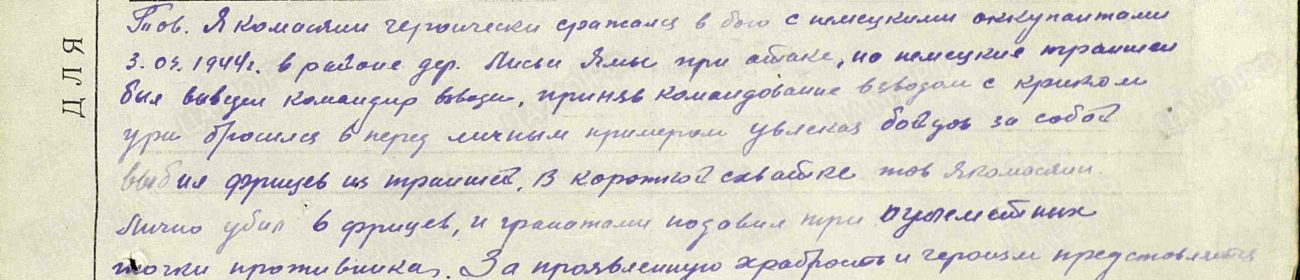 ДЛЯ
Тов. Якомаскин героически сражался в бою с немецкими оккупантами
3.03.1944г. в районе дер. Лисьи Ямы при атаке, на немецкие траншеи
был выведен командир взвода, приняв командование взводом с криком
ура бросился в перед личным примером увлекая бойцов за собой
выбил фрицев из траншей. В короткой схватке тов Якомаскин
лично убил 6 фрицев, и гранатами подавил три пулеметных
точки противника. За проявленную храбрость и героизм представляется